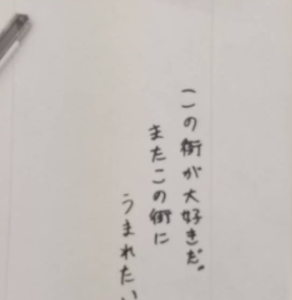 この街が大好きだ。
またこの街に
うまれたい